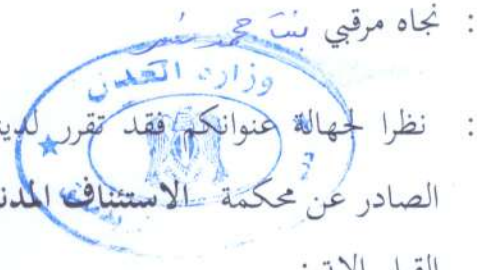 : نجاه مرقبي بنت محمد
وزارة العدل
: نظرا لجهالة عنوانكم فقد تقرر
الصادر عن محكمة الاستئناف
القرار الاتي :